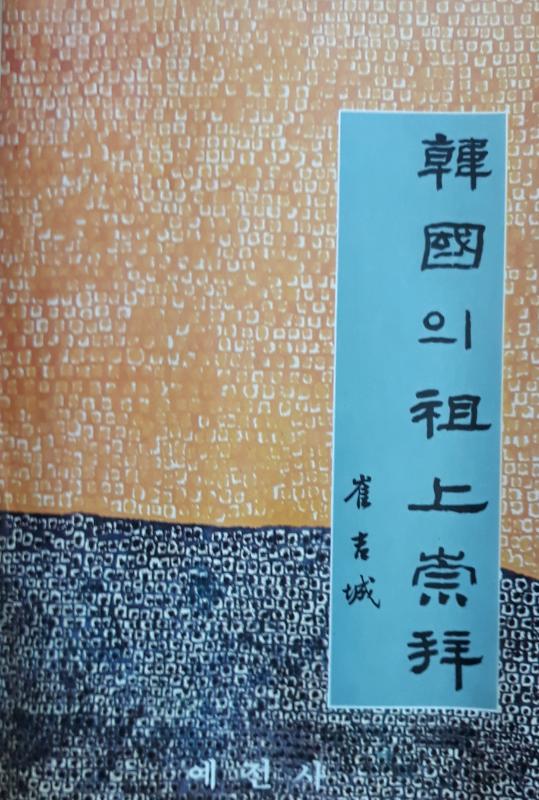 韓國의祖上崇拜
崔吉城
예전사